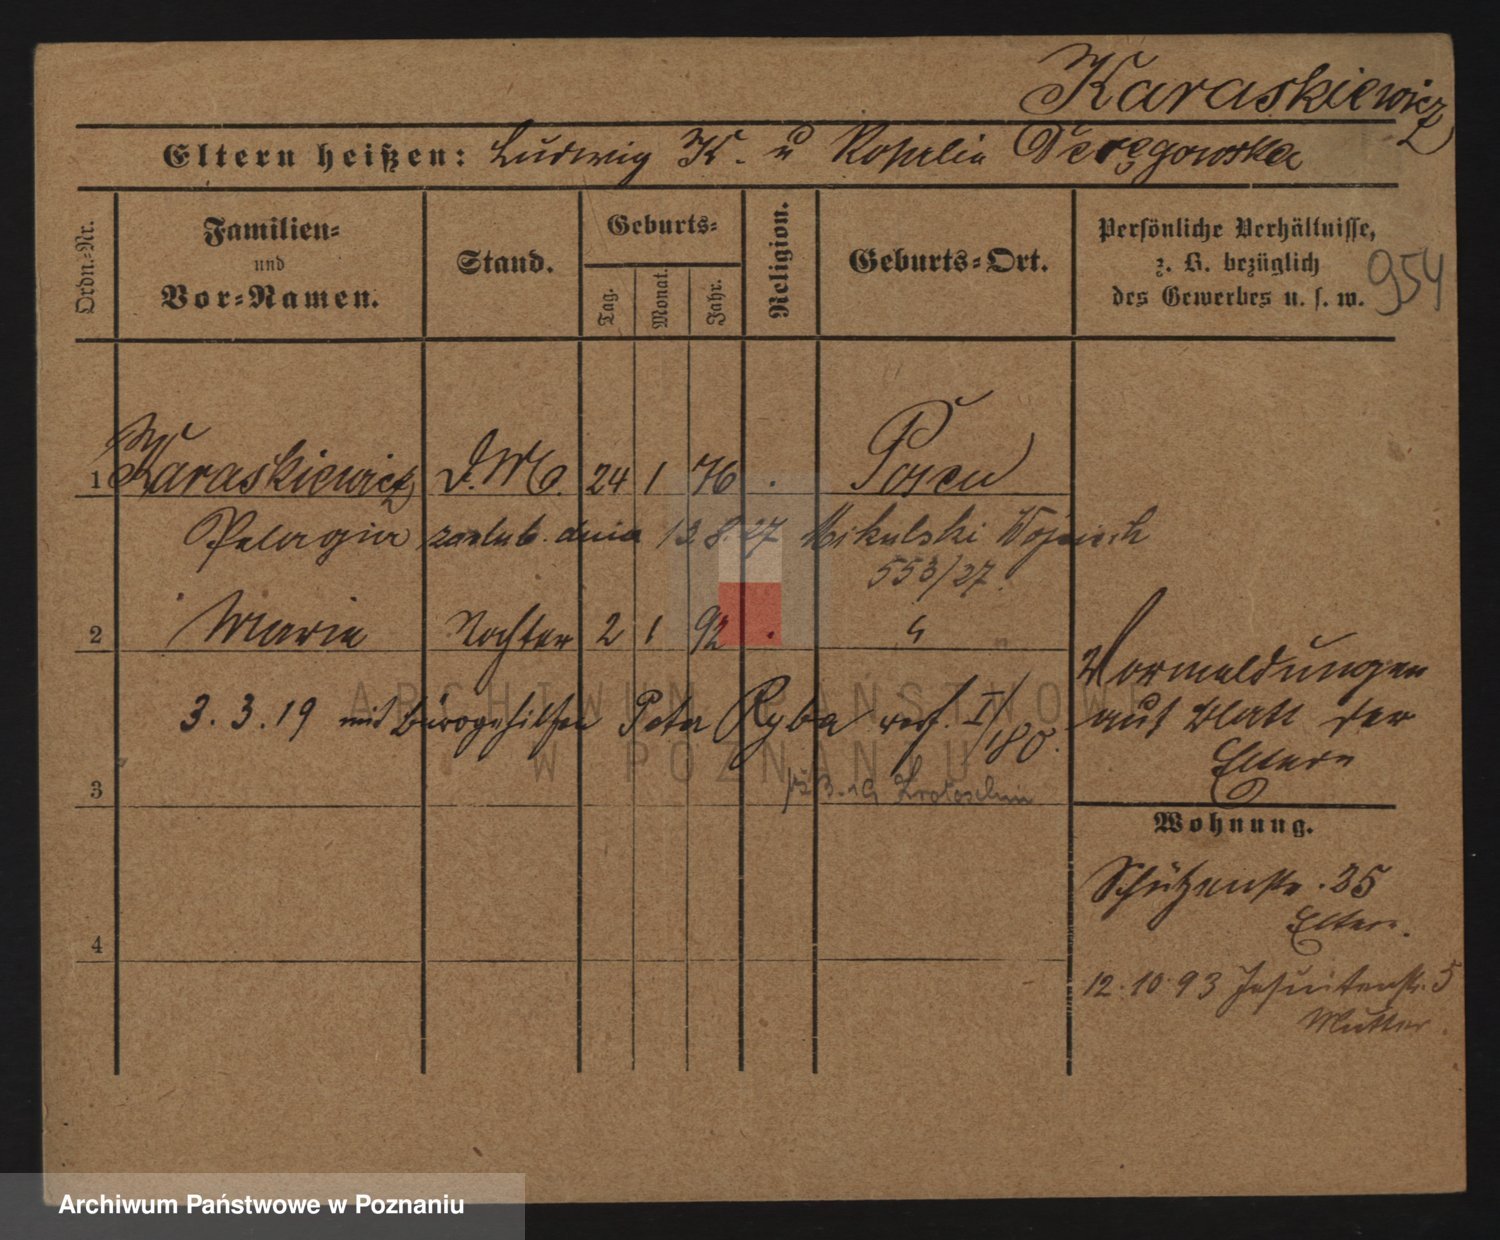 Karaskiewicz
Eltern heißen: Ludwig K. u Rosalia Deręgowska
Ordn.=Nr.
Familien=
und
Vor=Namen.
Stand.
Geburts=
Tag.
Monat.
Jahr.
Religion.
Geburts=Ort.
Persönliche Verhältnisse,
z. B. bezüglich
des Gewerbes u. s. w.
954
1 Karaskiewicz D. M. 24 1 76 . Posen
Pelagia zaślub. dnia 12 8. 27 Mikulski Wojciech
553/27.
2 Maria Tochter 2 1 92 . "
3. 3. 19 mit Bürogehilfen Peter Ryba verh. I/180.
3 3. 19 Krotoschin
4
Vormeldungen
auf Blatt der
Eltern
Wohnung.
Schützenstr. 35
Eltern.
12. 10. 93 Jesuitenstr. 5
Mutter.
ARCHIWUM PAŃSTWOWE
W POZNANIU
Archiwum Państwowe w Poznaniu